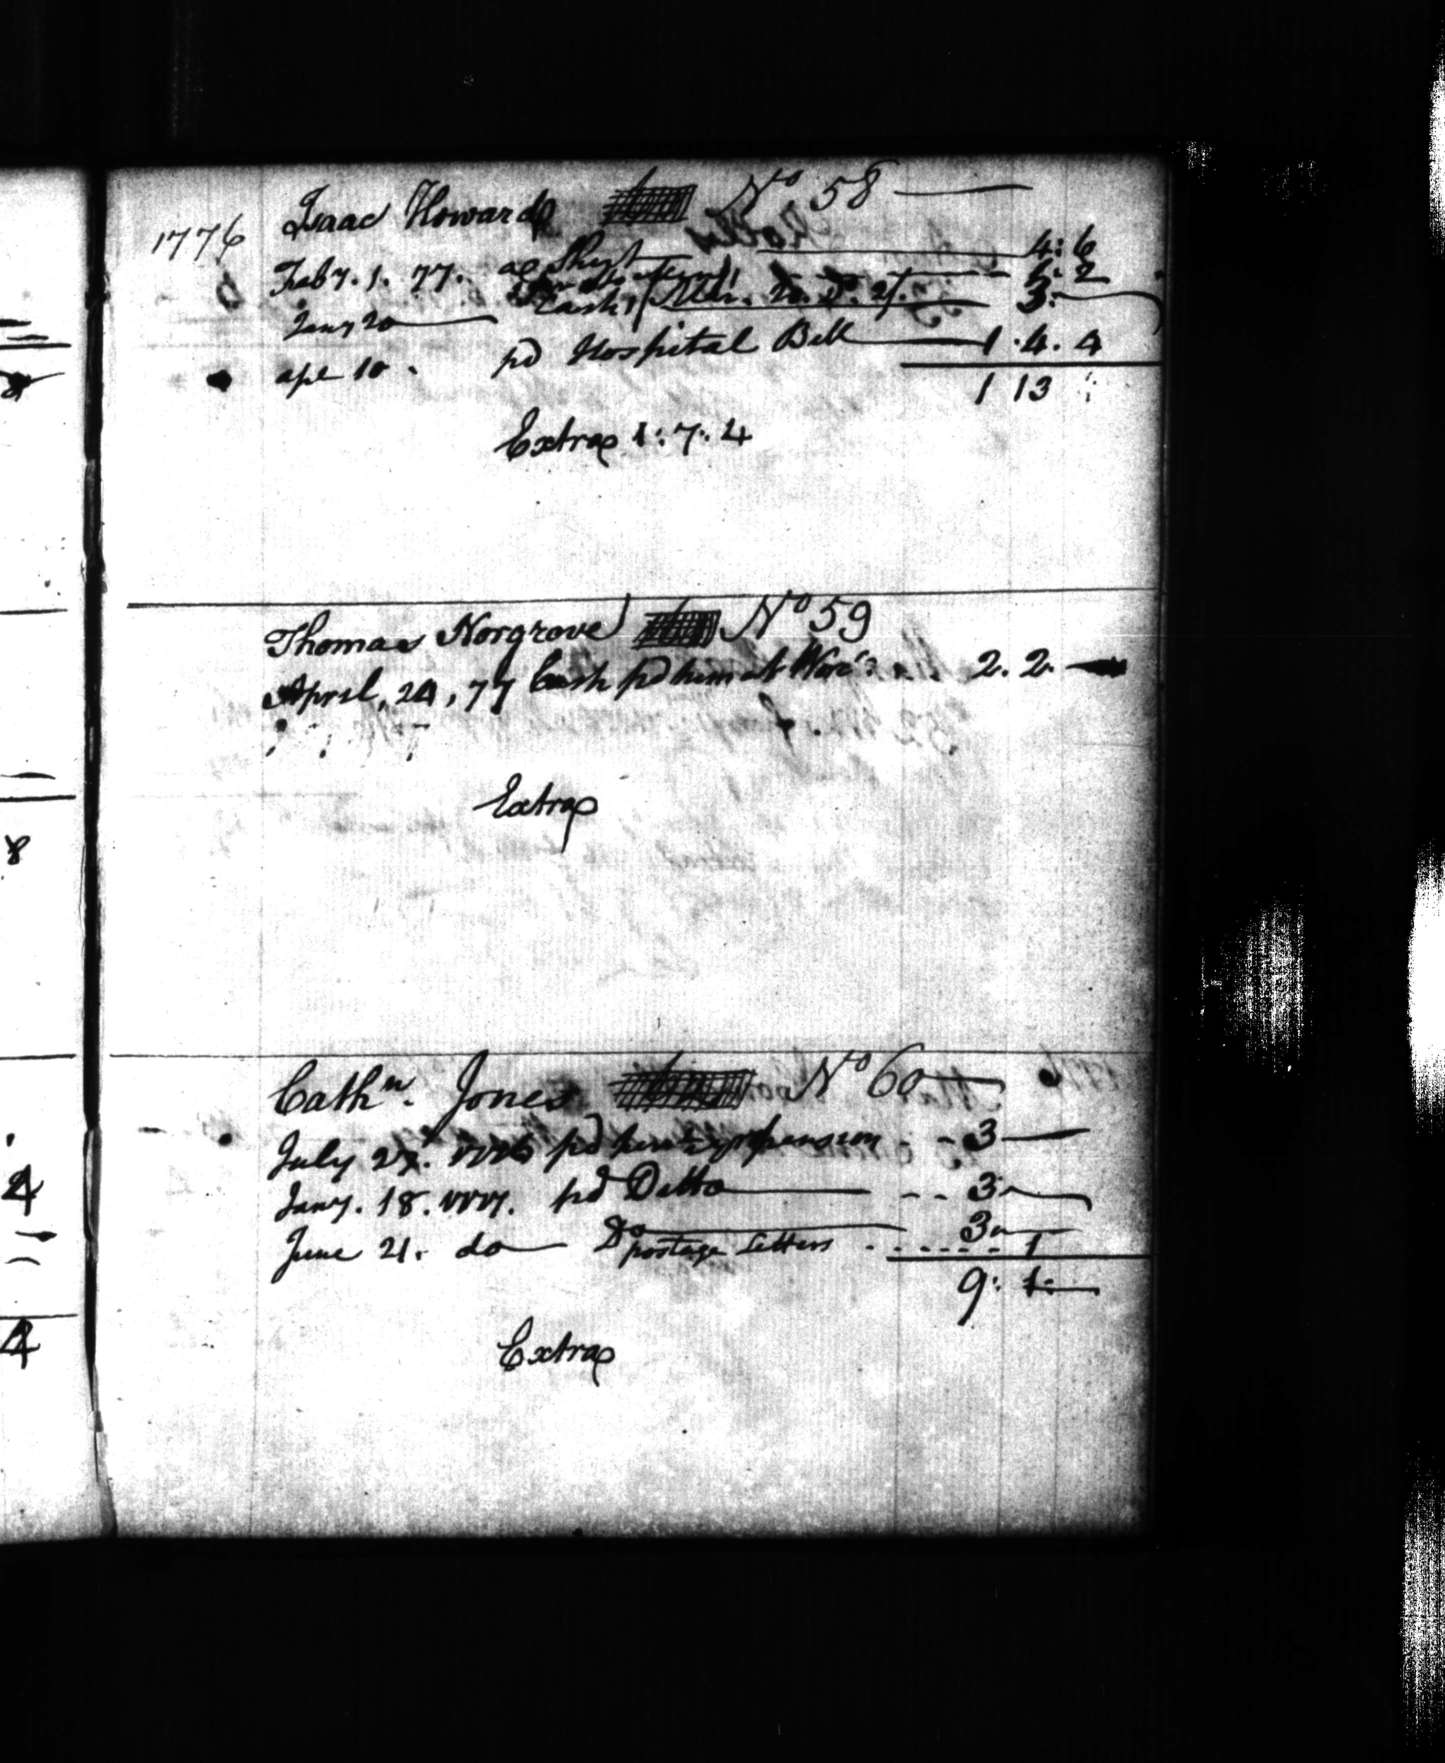 1776 Isaac Howard No. 58
Feby. 1. 77. a Shirt 4:6
2
Jany 20 Cash 3:
apl 10. pd Hospital Bill 1.4.4
1 13
Extra 1:7:4
Thomas Norgrove No 59
April, 24, 77 Cash pd him at 2.2.
Extra
Cathn. Jones No 60
July 27. 1776 pd her pension 3
Jany. 18. 1777. pd Ditto 3
June 21. do Do 3
postage Letters 1
9: 1:
Extra
8
4
4